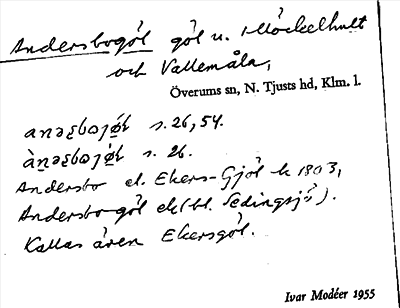 Andersbogöl göl u. Möckelhult
och Vallemåla,
Överums sn, N. Tjusts hd, Klm. l.
s. 26, 54.
s. 26.
Andersbo el. Ekers-Gjöl k 1803,
Andersbo-göl ek (bl. Sedingsjö).
Kallas även Ekersgöl.
Ivar Modéer 1955